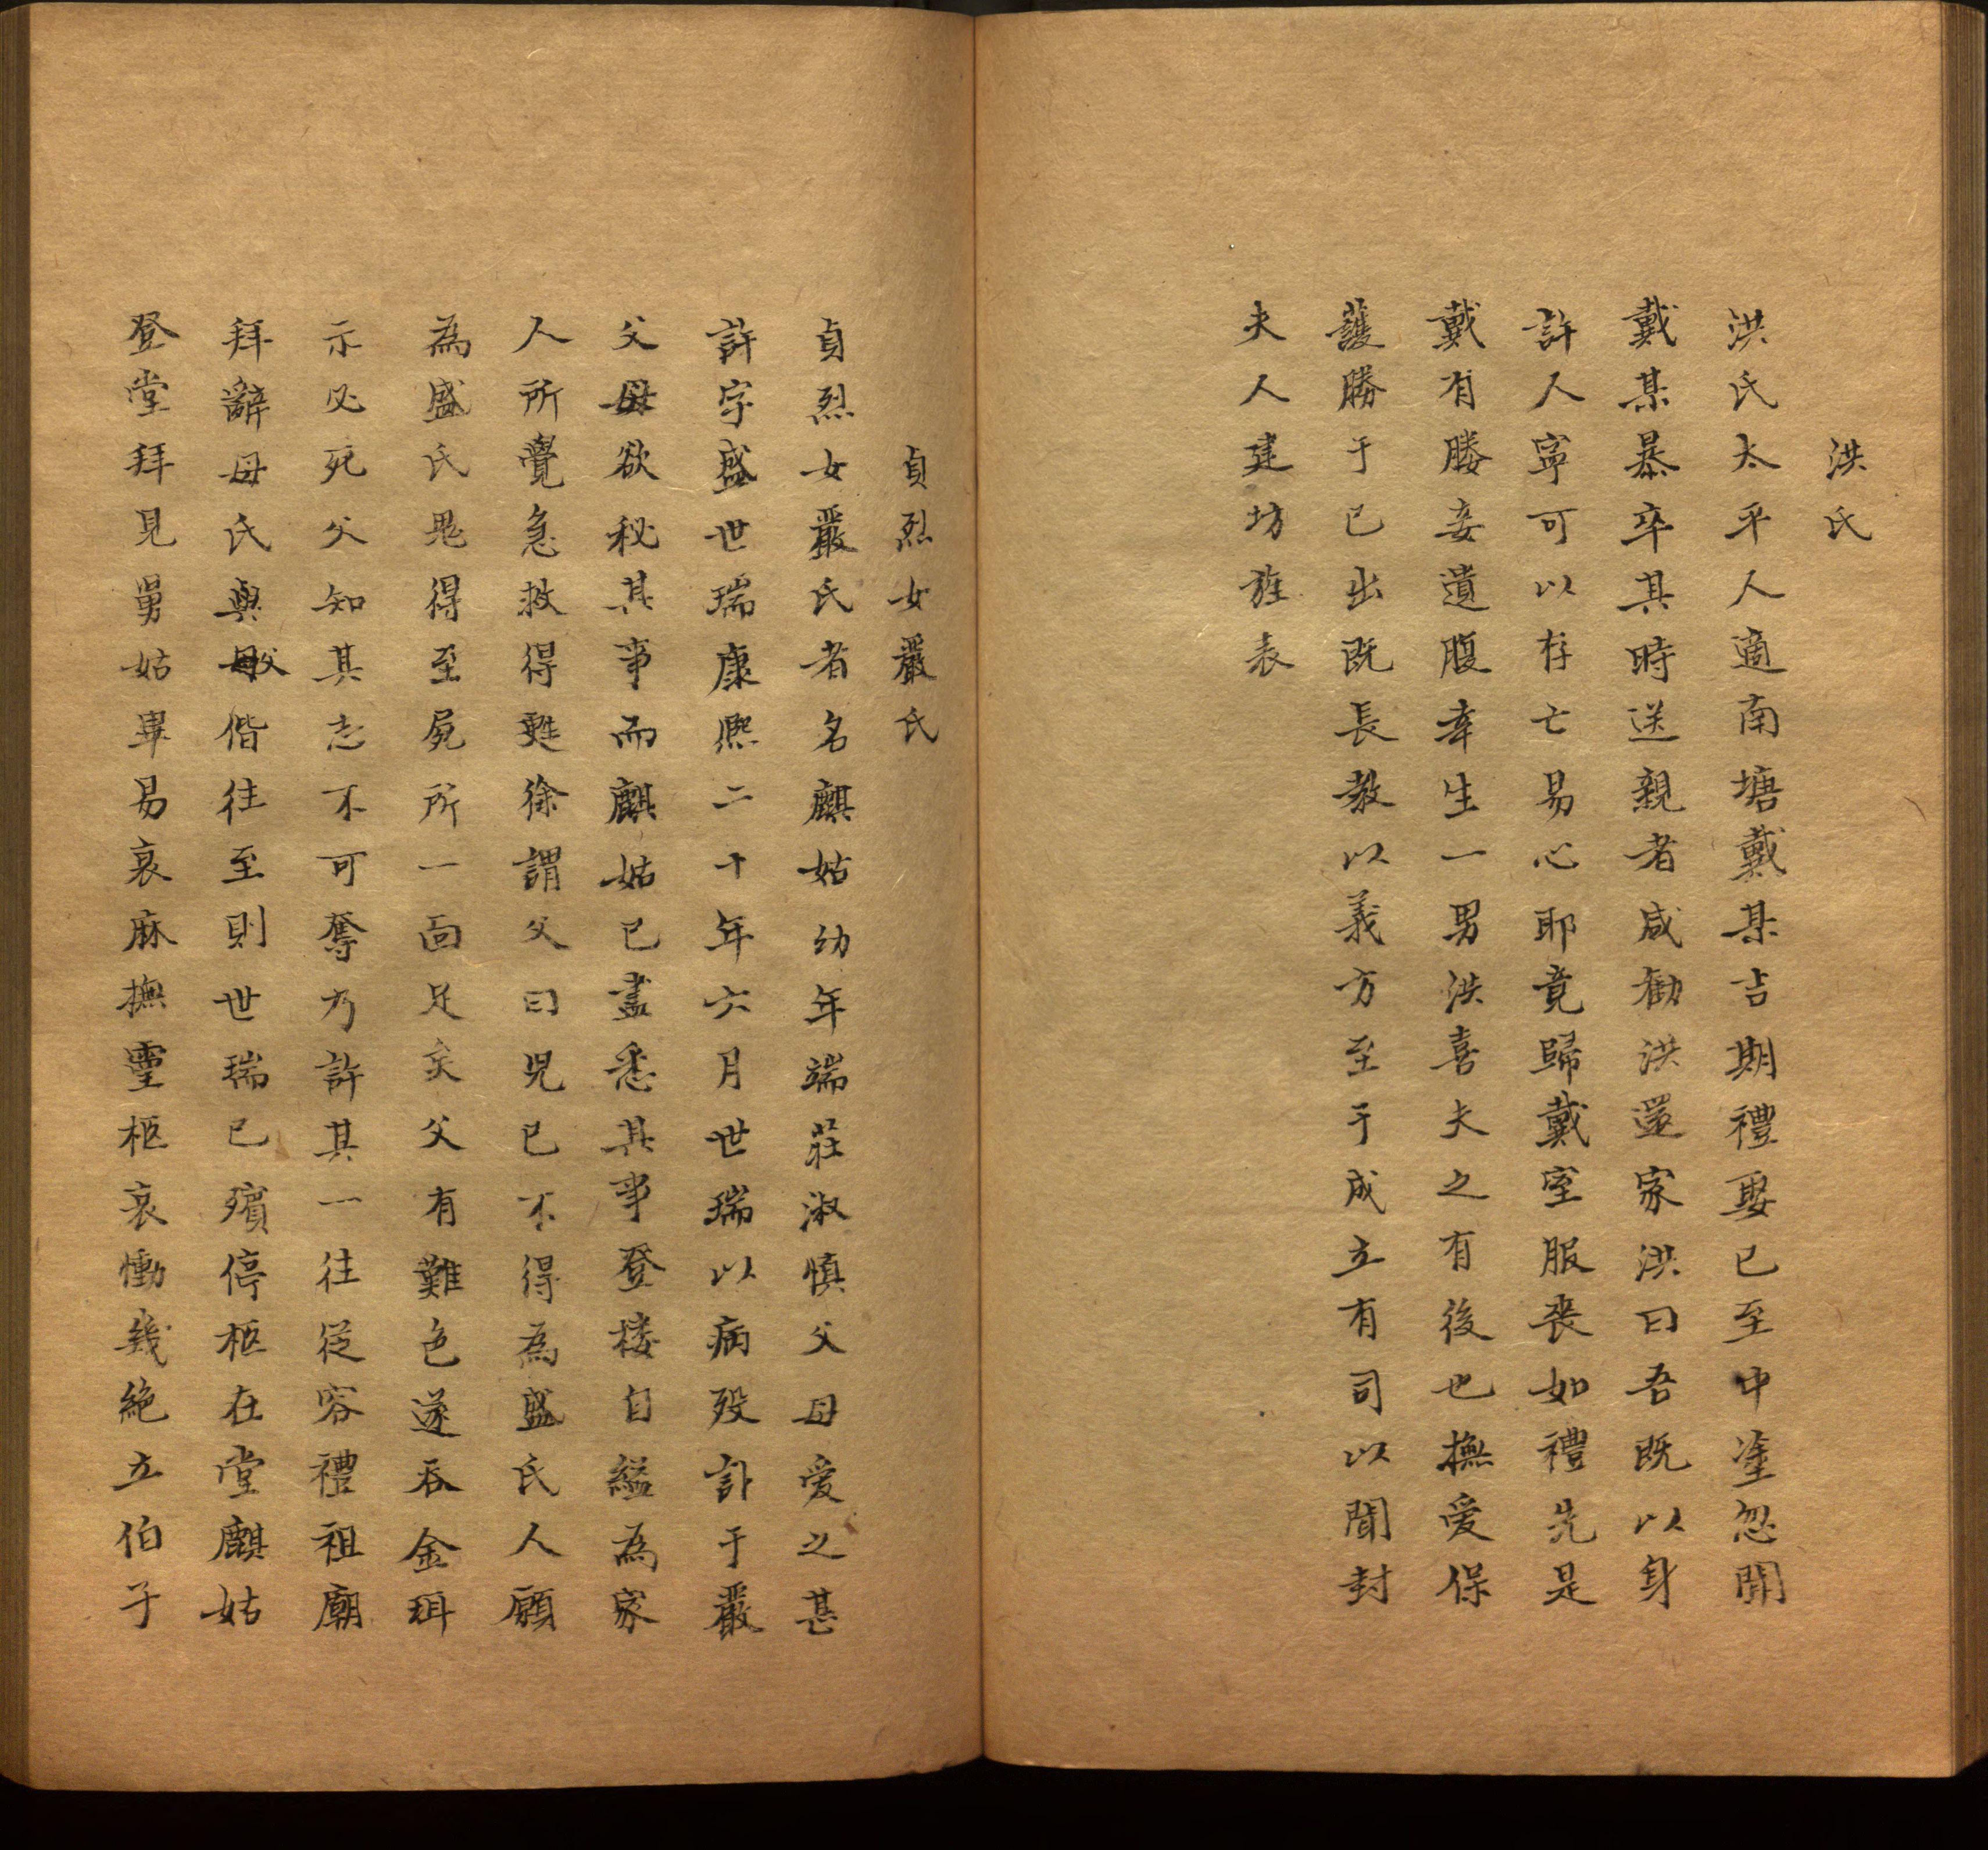 洪氏
洪氏太平人適南塘戴某吉期禮娶已至中塗忽聞
戴某暴卒其時送親者咸勸洪還家洪曰吾既以身
許人寧可以存亡易心耶竟歸戴室服喪如禮先是
戴有媵妾遺腹幸生一男洪喜夫之有後也撫爱保
護勝于已出既長教以義方至于成立有司以聞封
夫人建坊旌表
貞烈女嚴氏
貞烈女嚴氏者名麒姑幼年端莊淑慎父母爱之甚
許字盛世瑞康熈二十年六月世瑞以病歿訃于嚴
父母欲秘其事而麒姑已盡悉其事登楼自縊為家
人所覺急救得甦徐謂父曰児已不得為盛氏人願
為盛氏鬼得至屍所一面足矣父有難色遂吞金珥
示必死父知其志不可奪乃許其一往從容禮祖廟
拜辭母氏與父偕往至則世瑞已殯停柩在堂麒姑
登堂拜見舅姑畢易衰麻撫靈柩哀慟幾絶立伯子